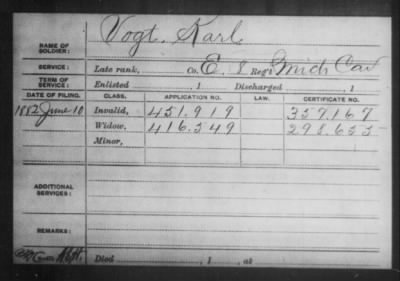 NAME OF SOLDIER: Vogt, Karl
SERVICE: Late rank, Co. E, 8 Reg't Mich Cav
TERM OF SERVICE: Enlisted , 1 Discharged , 1
DATE OF FILING. CLASS. APPLICATION NO. LAW. CERTIFICATE NO.
1882 June 10 Invalid, 451.919 359.169
Widow, 416.549 298.653
Minor,
ADDITIONAL SERVICES:
REMARKS:
Died , 1 , at